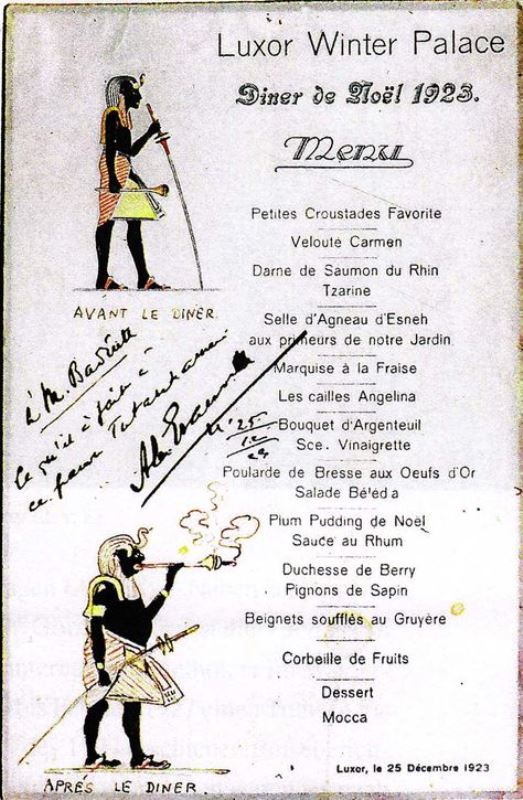 Luxor Winter Palace
Diner de Noël 1923.
Menu
Petites Croustades Favorite
Velouté Carmen
Darne de Saumon du Rhin
Tzarine
Selle d'Agneau d'Esneh
aux primeurs de notre Jardin
Marquise à la Fraise
Les cailles Angelina
Bouquet d'Argenteuil
Sce. Vinaigrette
Poularde de Bresse aux Oeufs d'Or
Salade Béleda
Plum Pudding de Noël
Sauce au Rhum
Duchesse de Berry
Pignons de Sapin
Beignets soufflés au Gruyère
Corbeille de Fruits
Dessert
Mocca
Luxor, le 25 Décembre 1923
AVANT LE DINER.
à M.
ce qu'il a fait à
ce pauvre Tutankamen
25
12
23
APRÉS LE DINER.